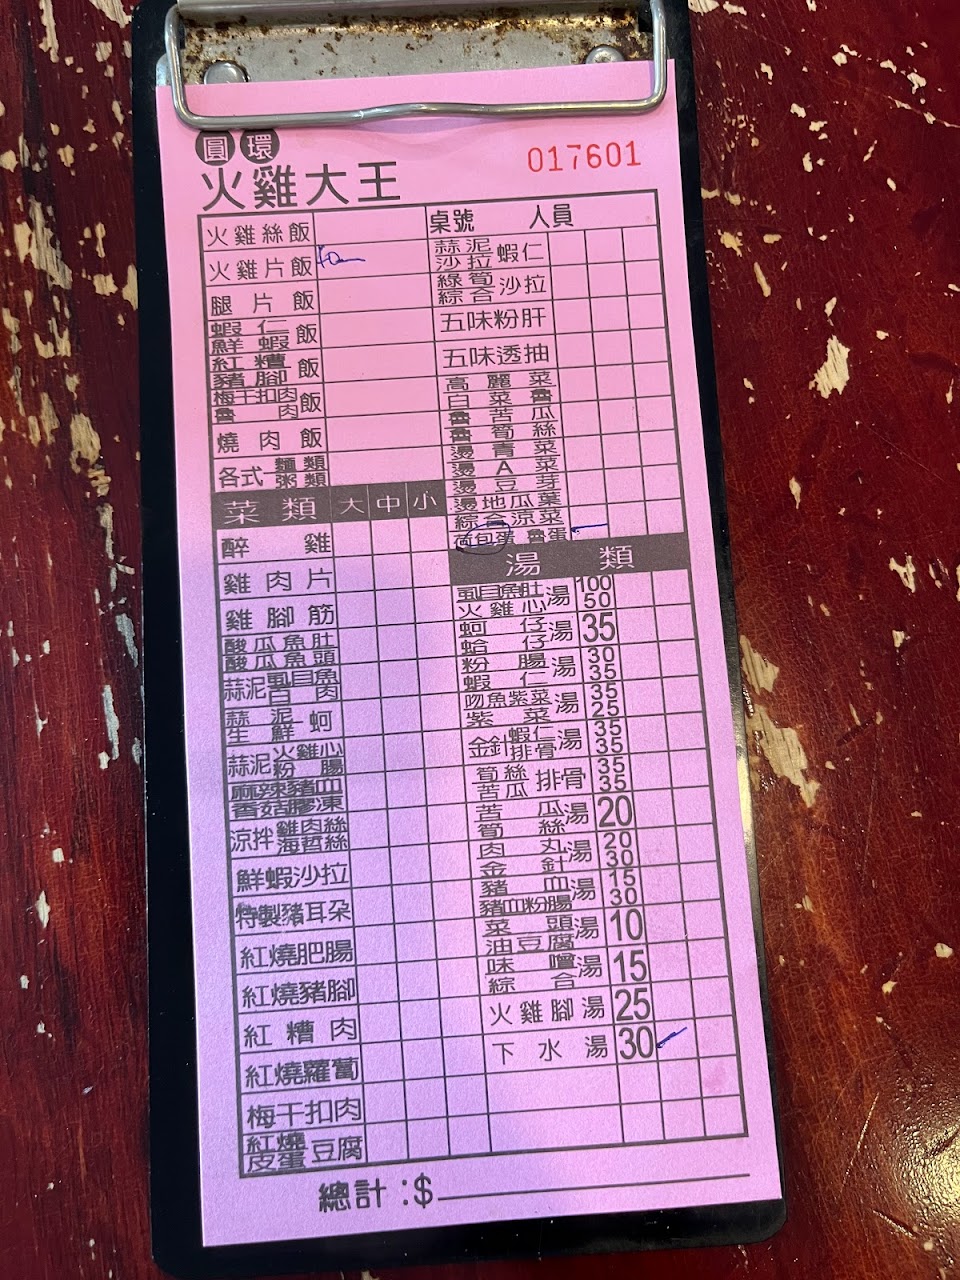 圓環
火雞大王
017601
火雞絲飯
火雞片飯
腿片飯
蝦仁
鮮蝦 飯
紅糟
豬腳 飯
梅干扣肉
魯肉 飯
燒肉飯
各式 麵類
粥類
菜類 大 中 小
醉雞
雞肉片
雞腳筋
酸瓜魚肚
酸瓜魚頭
蒜泥 虱目魚
白肉
蒜泥
生鮮 蚵
蒜泥 火雞心
粉腸
麻辣豬血
香菇膠凍
涼拌 雞肉絲
海哲絲
鮮蝦沙拉
特製豬耳朵
紅燒肥腸
紅燒豬腳
紅糟肉
紅燒蘿蔔
梅干扣肉
紅燒
皮蛋 豆腐
桌號 人員
蒜泥
沙拉 蝦仁
綠筍
綜合 沙拉
五味粉肝
五味透抽
高麗菜
白菜魯
魯苦瓜
魯筍絲
燙青菜
燙A菜
燙豆芽
燙地瓜葉
綜合涼菜
荷包蛋 魯蛋
湯類
虱目魚肚 湯 100
火雞心 50
蚵仔 湯 35
蛤仔
粉腸 湯 30
蝦仁 35
吻魚紫菜 湯 35
紫菜 25
金針 蝦仁 湯 35
排骨 35
筍絲 排骨 35
苦瓜 35
苦瓜 湯 20
筍絲
肉丸 湯 20
金針 30
豬血 湯 15
豬血粉腸 30
菜頭 湯 10
油豆腐
味噌 湯 15
綜合
火雞腳湯 25
下水湯 30
總計:$